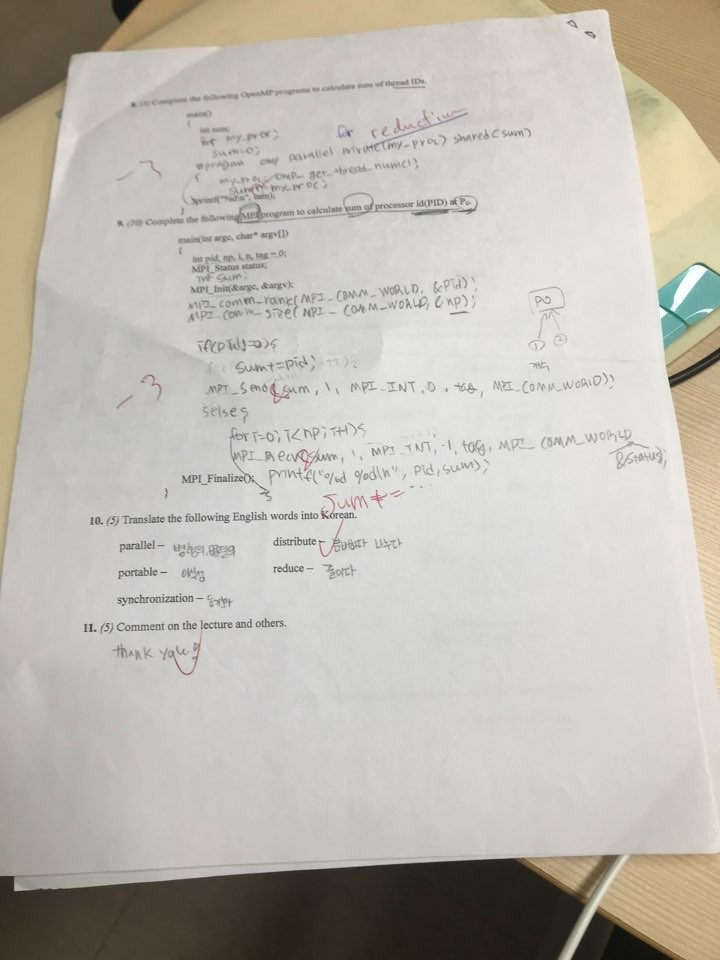 8. (5) Complete the following OpenMP programs to calculate sum of thread IDs.
main()
{
int sum;
int my_proc;
for reduction
sum=0;
#pragma omp parallel private(my_proc) shared(sum)
-3
{ my_proc = OMP_get_thread_num();
my_proc;
}
9. (10) Complete the following MPI program to calculate sum of processor id(PID) at P₀.
main(int argc, char* argv[])
{
int pid, np, i, n, tag = 0;
MPI_Status status;
int sum;
MPI_Init(&argc, &argv);
MPI_comm_rank(MPI_COMM_WORLD, &Pid);
MPI_comm_size(MPI_COMM_WORLD, &np);
P0
① ②
sum+=pid;
-3
MPI_Send(&sum, 1, MPI_INT, 0, tag, MPI_COMM_WORLD);
}else{
for i=0; i<np; i++){
MPI_Recv(&sum, 1, MPI_INT, -1, tag, MPI_COMM_WORLD
&status);
printf("%d %d\n", pid, sum);
MPI_Finalize();
}
}
Sum += ...
10. (5) Translate the following English words into Korean.
parallel – distribute – 나누다
portable – 이식성 reduce – 줄이다
synchronization – 동기화
11. (5) Comment on the lecture and others.
thank you!